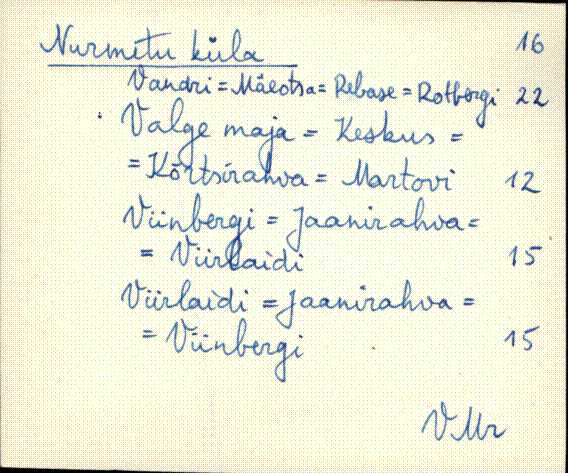 Nurmetu küla 16
Vandri = Mäeotsa = Rebase = Rotbergi 22
Valge maja = Keskus =
= Kõrtsirahva = Martovi 12
Viinbergi = Jaanirahva =
= Viirlaidi 15
Viirlaidi = Jaanirahva =
= Viinbergi 15
VMr